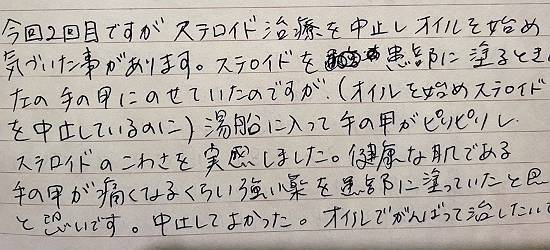 今回2回目ですが ステロイド治療を中止しオイルを始め
気づいた事があります。ステロイドを患部に塗るとき
左の手の甲にのせていたのですが、(オイルを始めステロイド
を中止しているのに) 湯船に入って手の甲がピリピリし、
ステロイドのこわさを実感しました。健康な肌である
手の甲が痛くなるくらい強い薬を患部に塗っていたと思
と恐いです。中止してよかった。オイルでがんばって治したいで